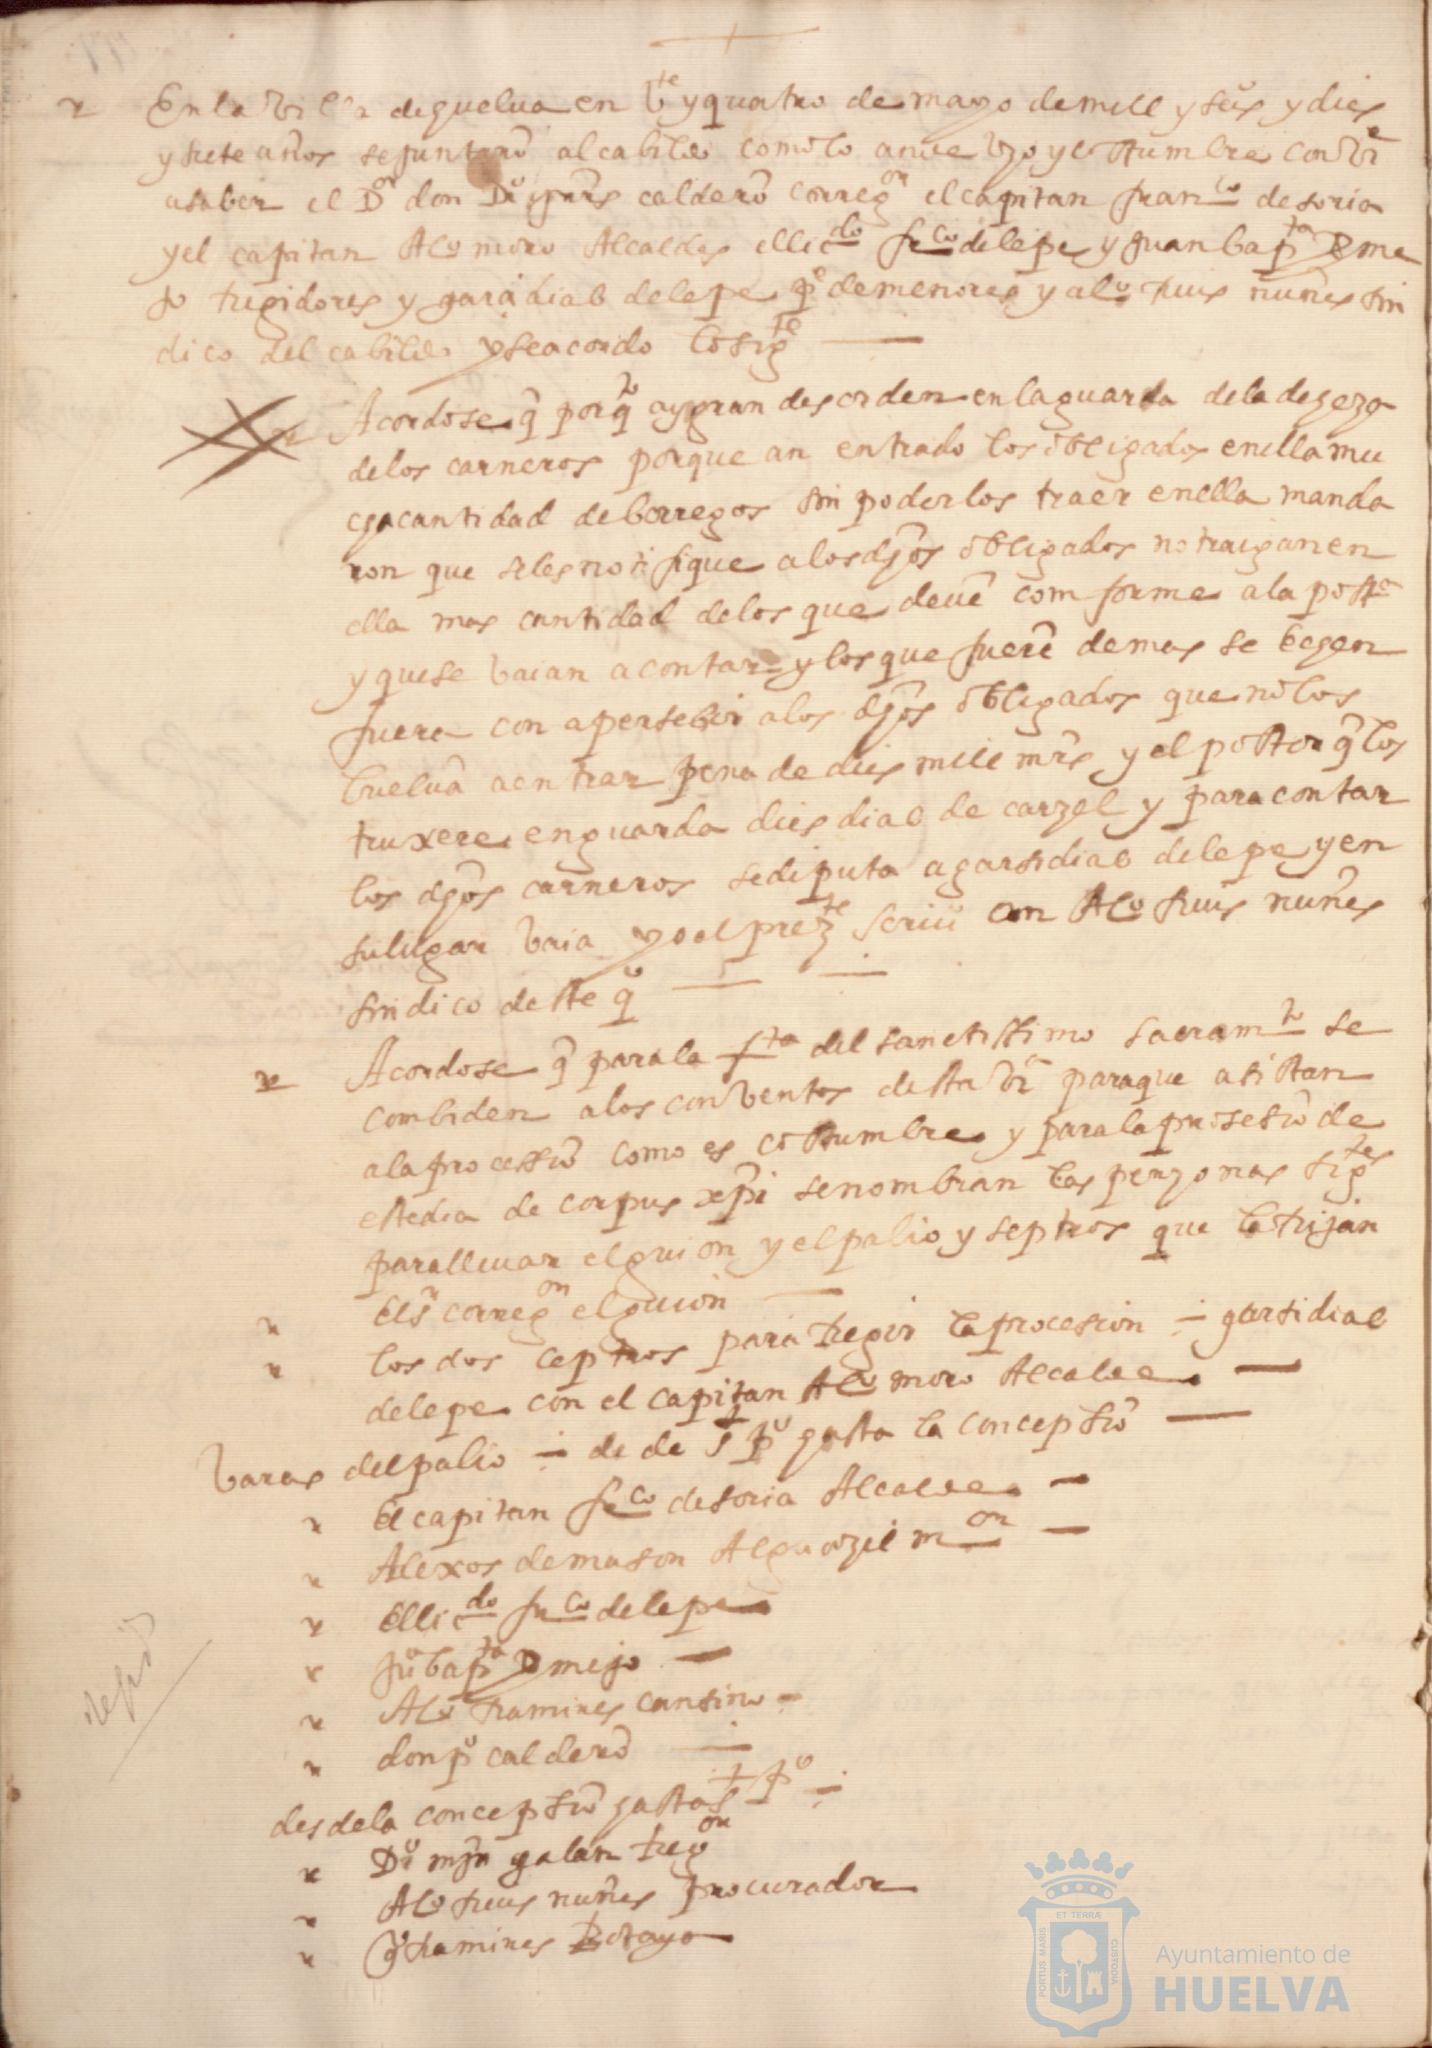 +
En la villa de guelua en bte y quatro de mayo de mill y seis y dies
y siete años se juntarō al cabildo como lo an de vzo y costumbre conbi
a saber el Dor don calderō corregor el capitan franco de soria
y el capitan Alo moro Alcaldes el licdo frco de lepe y juan bapta
rregidores y garsi dias de lepe po de menores y alo rruis nuñes sin
dico del cabildo y se acordo lo sigte
Acordose q̄ porqto ay gran desorden en la guarda de la degeza
de los carneros porque an entrado los obligados en ella mu
cga cantidad de borregos sin poderlos traer en ella manda
ron que se les notifique a los dgos obligados no traigan en
ella mas cantidad de los que devē comforme a la postra
y que se baian a contar y los que fuerē de mas se echen
fuera con apersebir a los dgos obligados que no los
buelvā a entrar pena de dies mill mrs y el pastor q̄ los
truxere en guarda dies dias de carzel y para contar
los dgos carneros se diputa a garsi dias de lepe y en
su lugar baia yo el prezte scriuo con Alo rruis nuñes
sindico deste qo
Acordose q̄ para la fta del sanctissimo sacramto se
combiden a los conventos desta bi para que asistan
a la processiō como es costumbre y para la prosesiō de
este dia de corpus xpi se nombran las perzonas sigtes
para lleuar el guion y el palio y septros que la rrijan
El sr corregor el guion
los dos ceptros para rregir la procesion garsi dias
de lepe con el capitan Alo moro Alcalde
baras del palio de de s po gasta la concepsiō
El capitan frco de soria Alcalde
Alexos de mason Alguazil mor
El licdo frco de lepe
Ju bapta
Alo rramires cansino
don po calderō
desde la concepsiō gasta s po
Do mrn galan rregor
Alo rruis nuñes procurador
rramires
Ayuntamiento de
HUELVA
PORTUS MARIS
ET TERRÆ
CUSTODIA